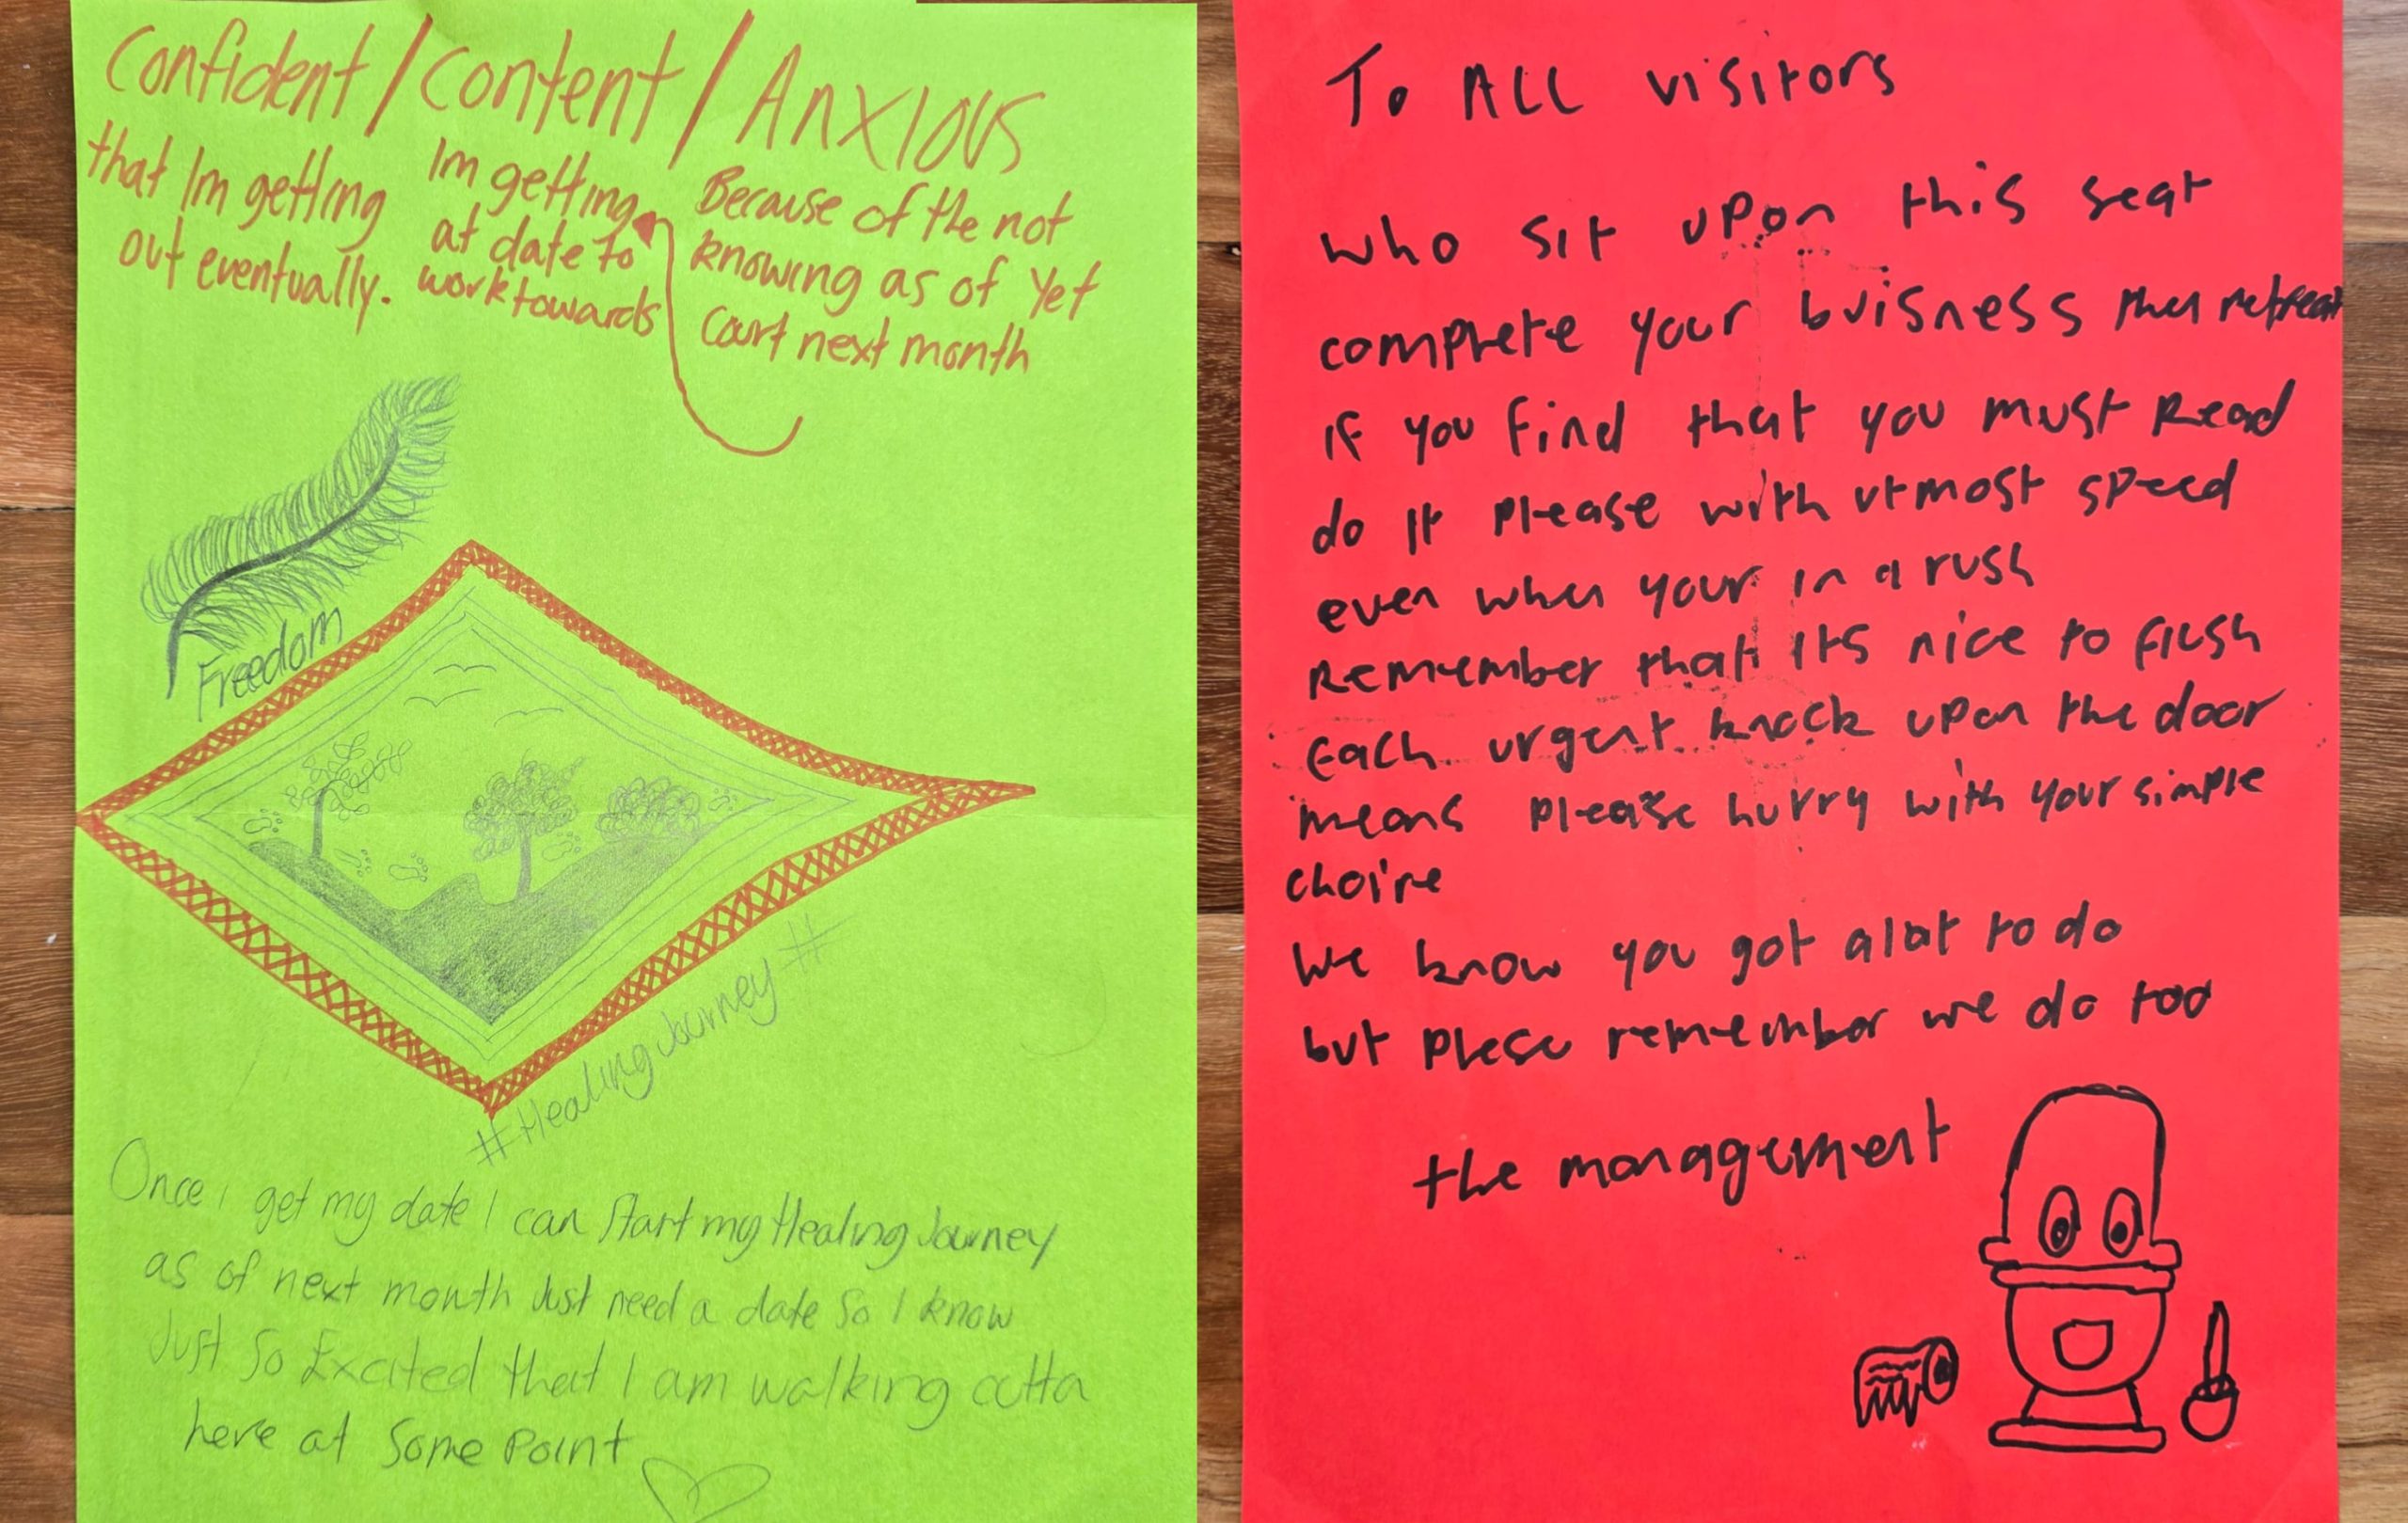 Confident / Content / Anxious
that Im getting out eventually.
Im getting at date to work towards
Because of the not knowing as of Yet Court next month
Freedom
#Healing Journey#
Once i get my date I can Start my Healing Journey
as of next month Just need a date So I know
Just So Excited that I am walking outta
here at Some Point
To ALL visitors
who sit upon this seat
complete your buisness then retreat
IF you find that you must Read
do It Please with utmost speed
even when your in a rush
Remember that its nice to flush
Each urgent knock upon the door
means please hurry with your simple
choire
We know you got alot to do
but plese remember we do too
the management